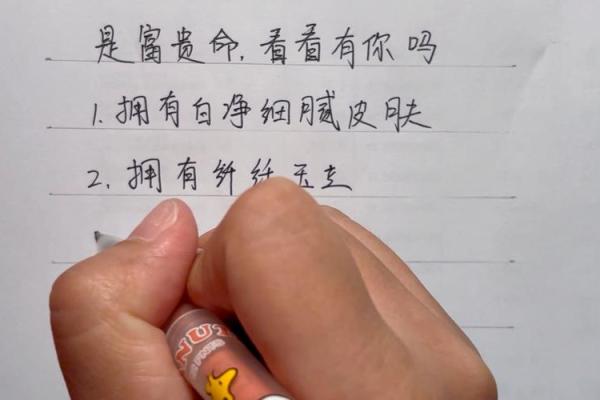 是富贵命,看看有你吗
1.拥有白净细腻皮肤
2.拥有纤纤玉
UN